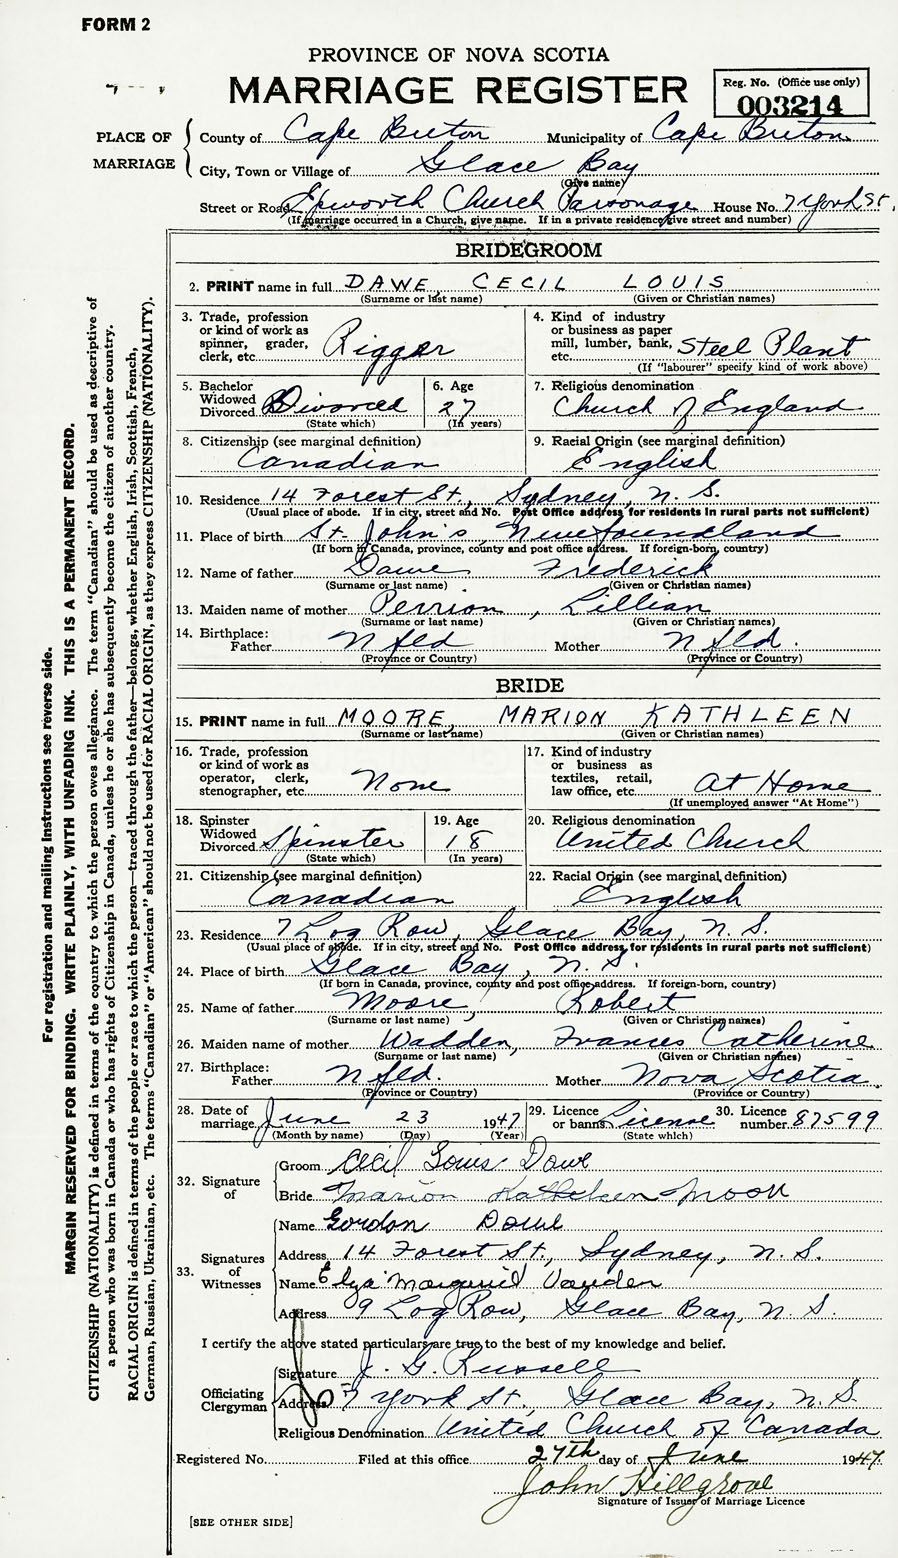 FORM 2
PROVINCE OF NOVA SCOTIA
MARRIAGE REGISTER
Reg. No. (Office use only)
003214
PLACE OF MARRIAGE
County of Cape Breton Municipality of Cape Breton
City, Town or Village of Glace Bay
(Give name)
Street or Road Epworth Church Parsonage House No. 7 York St.
(If marriage occurred in a Church, give name. If in a private residence give street and number)
BRIDEGROOM
2. PRINT name in full DAWE, CECIL LOUIS
(Surname or last name) (Given or Christian names)
3. Trade, profession or kind of work as spinner, grader, clerk, etc. Rigger
4. Kind of industry or business as paper mill, lumber, bank, etc. Steel Plant
(If "labourer" specify kind of work above)
5. Bachelor Widowed Divorced Divorced
(State which)
6. Age 27
(In years)
7. Religious denomination
Church of England
8. Citizenship (see marginal definition)
Canadian
9. Racial Origin (see marginal definition)
English
10. Residence 14 Forest St., Sydney, N. S.
(Usual place of abode. If in city, street and No. Post Office address for residents in rural parts not sufficient)
11. Place of birth St. John's, Newfoundland
(If born in Canada, province, county and post office address. If foreign-born, country)
12. Name of father Dawe Frederick
(Surname or last name) (Given or Christian names)
13. Maiden name of mother Perrion, Lillian
(Surname or last name) (Given or Christian names)
14. Birthplace: Father Nfld Mother Nfld.
(Province or Country) (Province or Country)
BRIDE
15. PRINT name in full MOORE, MARION KATHLEEN
(Surname or last name) (Given or Christian names)
16. Trade, profession or kind of work as operator, clerk, stenographer, etc. None
17. Kind of industry or business as textiles, retail, law office, etc. At Home
(If unemployed answer "At Home")
18. Spinster Widowed Divorced Spinster
(State which)
19. Age 18
(In years)
20. Religious denomination
United Church
21. Citizenship (see marginal definition)
Canadian
22. Racial Origin (see marginal definition)
English
23. Residence 7 Log Row, Glace Bay, N. S.
(Usual place of abode. If in city, street and No. Post Office address for residents in rural parts not sufficient)
24. Place of birth Glace Bay, N. S.
(If born in Canada, province, county and post office address. If foreign-born, country)
25. Name of father Moore, Robert
(Surname or last name) (Given or Christian names)
26. Maiden name of mother Wadden, Frances Catherine
(Surname or last name) (Given or Christian names)
27. Birthplace: Father Nfld. Mother Nova Scotia.
(Province or Country) (Province or Country)
28. Date of marriage June 23 1947
(Month by name) (Day) (Year)
29. Licence or banns License
(State which)
30. Licence number 87599
32. Signature of
Groom Cecil Louis Dawe
Bride Marion Kathleen Moore
33. Signatures of Witnesses
Name Gordon Dawe
Address 14 Forest St., Sydney, N. S.
Name
Address 9 Log Row, Glace Bay, N. S.
I certify the above stated particulars are true to the best of my knowledge and belief.
Officiating Clergyman
Signature J. G. Russell
Address 7 York St., Glace Bay, N. S.
Religious Denomination United Church of Canada
Registered No. Filed at this office 27th day of June 1947
John Hillgrove
Signature of Issuer of Marriage Licence
[SEE OTHER SIDE]
For registration and mailing instructions see reverse side.
MARGIN RESERVED FOR BINDING. WRITE PLAINLY, WITH UNFADING INK. THIS IS A PERMANENT RECORD.
CITIZENSHIP (NATIONALITY) is defined in terms of the country to which the person owes allegiance. The term "Canadian" should be used as descriptive of
a person who was born in Canada or who has rights of Citizenship in Canada, unless he or she has subsequently become the citizen of another country.
RACIAL ORIGIN is defined in terms of the people or race to which the person—traced through the father—belongs, whether English, Irish, Scottish, French,
German, Russian, Ukrainian, etc. The terms "Canadian" or "American" should not be used for RACIAL ORIGIN, as they express CITIZENSHIP (NATIONALITY).